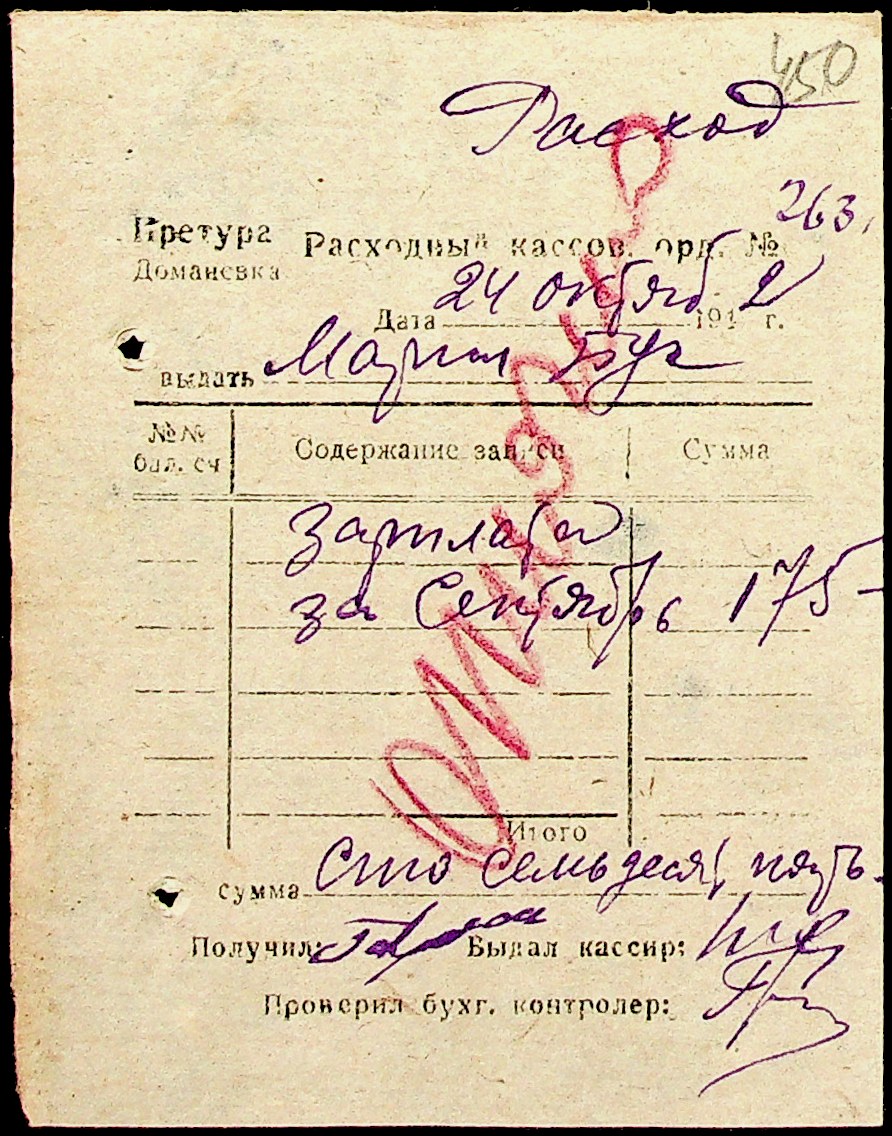 450
Расход
263
Претура
Домановка
Расходный кассов. орд. №
24 октяб 2
Дата 194 г.
Марии Бук
выдать
№№ бал. сч Содержание записи Сумма
Зарплата
за Сентябрь 175-
Итого
сумма Сто семьдесят пять
Получил: Выдал кассир:
Проверил бухг. контролер: